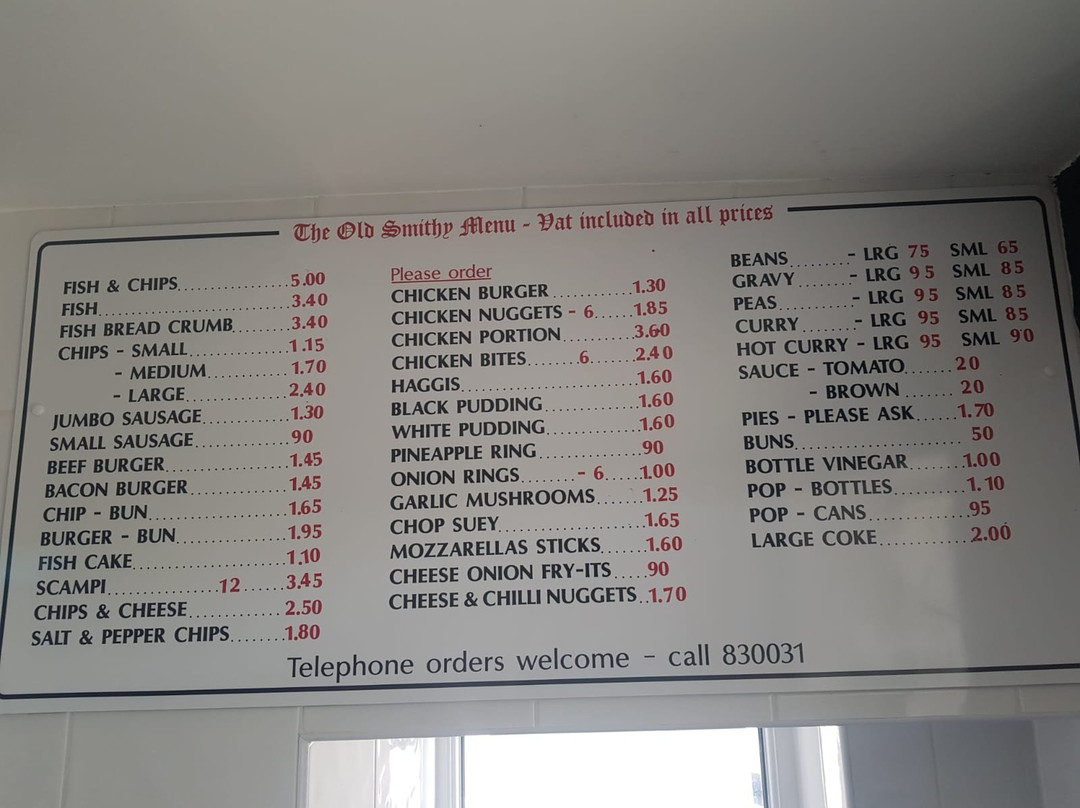 The Old Smithy Menu - Vat included in all prices
FISH & CHIPS.................5.00
FISH..............................3.40
FISH BREAD CRUMB.........3.40
CHIPS - SMALL...............1.15
- MEDIUM.............1.70
- LARGE................2.40
JUMBO SAUSAGE.............1.30
SMALL SAUSAGE..............90
BEEF BURGER..................1.45
BACON BURGER..............1.45
CHIP - BUN.....................1.65
BURGER - BUN................1.95
FISH CAKE......................1.10
SCAMPI.................12.......3.45
CHIPS & CHEESE..............2.50
SALT & PEPPER CHIPS........1.80
Please order
CHICKEN BURGER............1.30
CHICKEN NUGGETS - 6......1.85
CHICKEN PORTION...........3.60
CHICKEN BITES........6.......2.40
HAGGIS..........................1.60
BLACK PUDDING..............1.60
WHITE PUDDING.............1.60
PINEAPPLE RING...............90
ONION RINGS........- 6.....1.00
GARLIC MUSHROOMS.......1.25
CHOP SUEY.....................1.65
MOZZARELLAS STICKS......1.60
CHEESE ONION FRY-ITS.....90
CHEESE & CHILLI NUGGETS..1.70
BEANS.........- LRG 75 SML 65
GRAVY........- LRG 95 SML 85
PEAS...........- LRG 95 SML 85
CURRY........- LRG 95 SML 85
HOT CURRY - LRG 95 SML 90
SAUCE - TOMATO.......20
- BROWN......... 20
PIES - PLEASE ASK......1.70
BUNS........................ 50
BOTTLE VINEGAR........1.00
POP - BOTTLES..........1.10
POP - CANS...............95
LARGE COKE.............2.00
Telephone orders welcome - call 830031